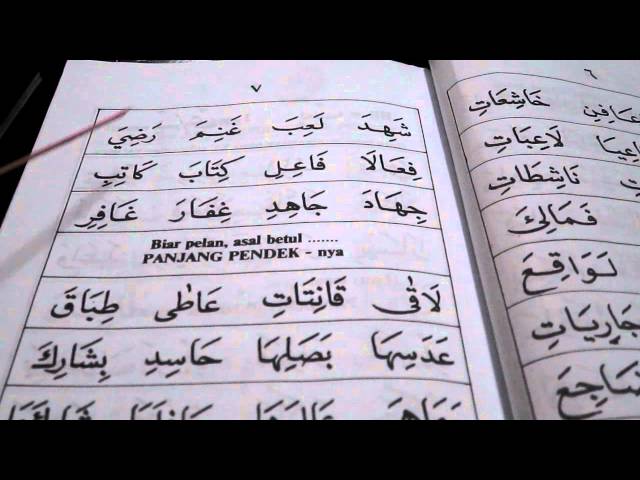 ٧
شَهِدَ لَعِبَ غَنِمَ رَضِيَ
فِعَالَا فَاعِلِ كِتَابَ كَاتِبِ
جِهَادَ جَاهِدِ غِفَارَ غَافِرِ
Biar pelan, asal betul .......
PANJANG PENDEK - nya
لَاقٰى قَانِتَاتِ عَاطٰى طِبَاقَ
عَدَسِهَا بَصَلِهَا حَاسِدِ بِشَارِكَ
٦
خَاشِعَاتِ
لَاعِبَاتِ
نَاشِطَاتِ
فَمَالِئَ
لَوَاقِعَ
جَارِيَاتِ